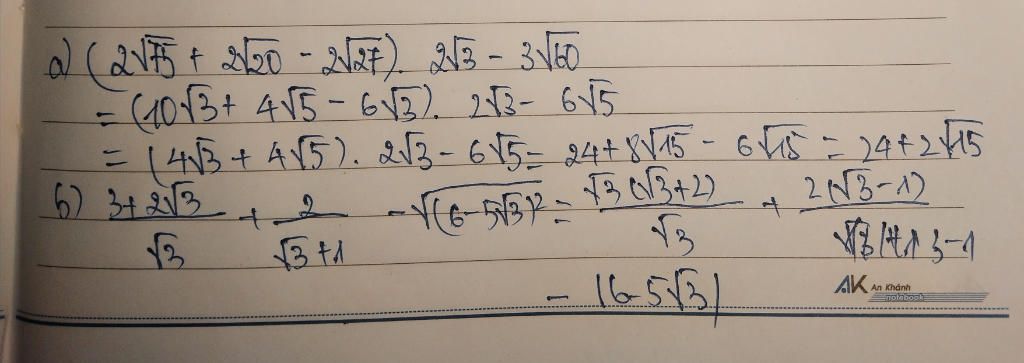 a) (2√75 + 2√20 - 2√27). 2√3 - 3√60
= (10√3 + 4√5 - 6√3). 2√3 - 6√5
= (4√3 + 4√5). 2√3 - 6√5 = 24 + 8√15 - 6√15 = 24 + 2√15
b) (3+2√3)/√3 + 2/(√3+1) - √(6-5√3)² = √3(√3+2)/√3 + 2(√3-1)/(3-1)
- |6-5√3|
AK An Khánh
notebook